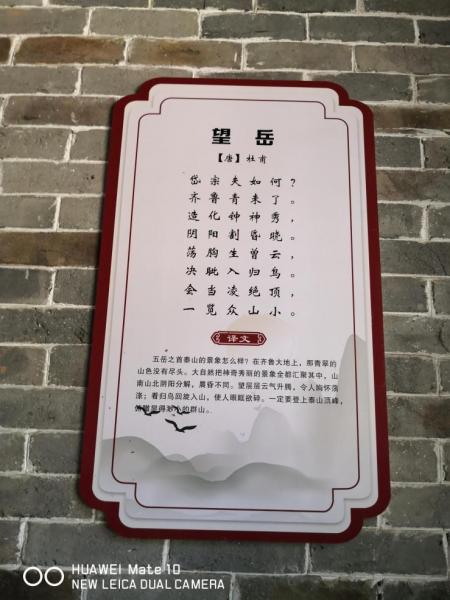 望岳
【唐】杜甫
岱宗夫如何？
齐鲁青未了。
造化钟神秀，
阴阳割昏晓。
荡胸生曾云，
决眦入归鸟。
会当凌绝顶，
一览众山小。
译文
五岳之首泰山的景象怎么样？在齐鲁大地上，那青翠的
山色没有尽头。大自然把神奇秀丽的景象全都汇聚其中，山
南山北阴阳分解，晨昏不同。望层层云气升腾，令人胸怀荡
涤；看归鸟回旋入山，使人眼眶欲碎。一定要登上泰山顶峰，
俯瞰显得渺小的群山。
HUAWEI Mate 10
NEW LEICA DUAL CAMERA